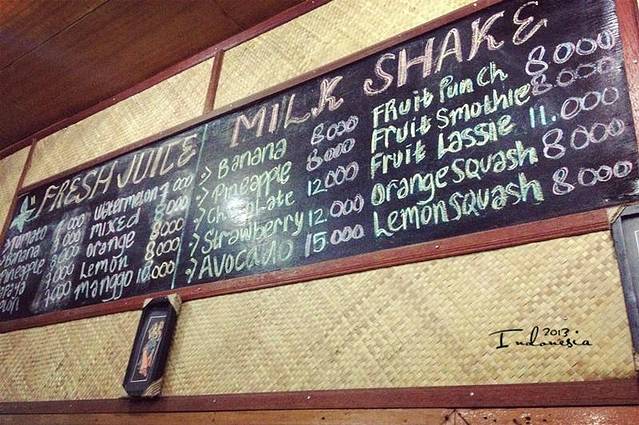 FRESH JUICE
Tomato 7.000
Banana 7.000
Pineapple 7.000
Papaya 7.000
7.000
Watermelon 7.000
MIXED 8.000
Orange 8.000
Lemon 8.000
Manggo 10.000
MILK SHAKE
Banana 8.000
Pineapple 8.000
Chocolate 12.000
Strawberry 12.000
Avocado 15.000
FRuit Punch 8.000
Fruit Smothie 8.000
Fruit Lassie 11.000
Orange Squash 8.000
Lemon Squash 8.000
2013
Indonesia